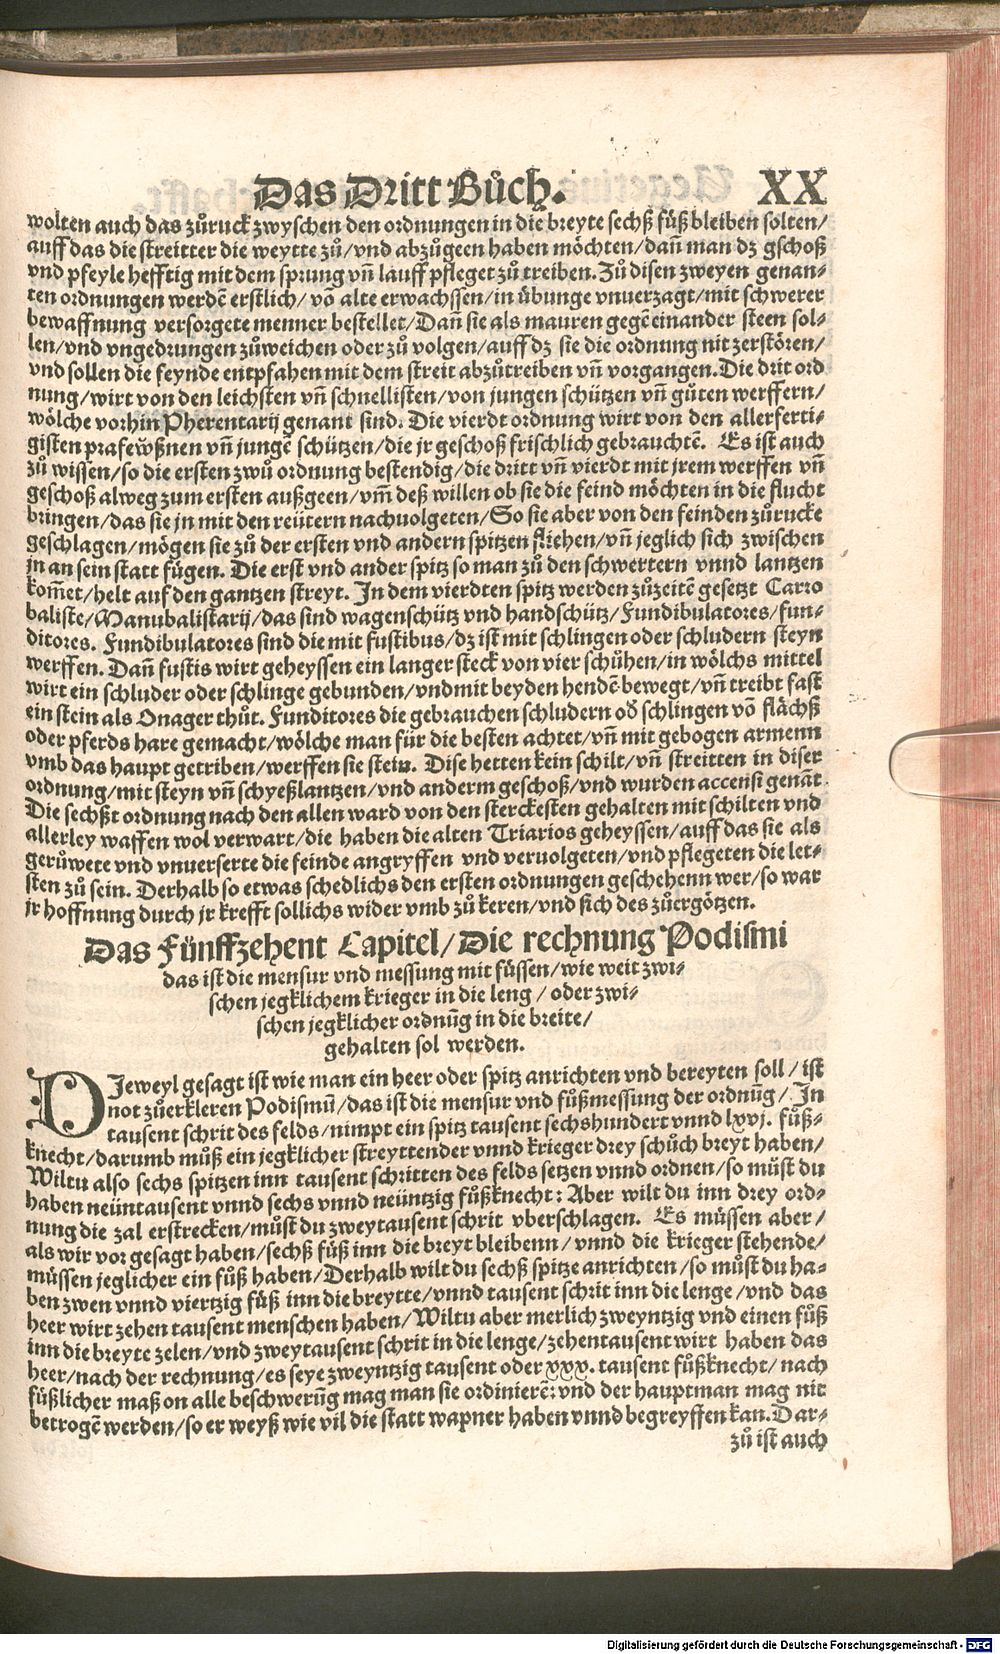 Das Dritt Bůch. XX
wolten auch das zůruck zwyschen den ordnungen in die breyte sechß fůß bleiben solten/
auff das die streitter die weytte zů/ vnd abzůgeen haben möchten/ dañ man dz gschoß
vnd pfeyle hefftig mit dem sprung vñ lauff pfleget zů treiben. Zů disen zweyen genan-
ten ordnungen werdē erstlich/ vō alte erwachssen/ in übunge vnuerzagt/ mit schwerer
bewaffnung versorgete menner bestellet/ Dañ sie als mauren gegē einander steen sol-
len/ vnd vngedrungen zůweichen oder zů volgen/ auff dz sie die ordnung nit zerstören/
vnd sollen die feynde entpfahen mit dem streit abzůtreiben vñ vorgangen. Die drit ord
nung/ wirt von den leichsten vñ schnellisten/ von jungen schützen vñ gůten werffern/
wölche vorhin Pherentarij genant sind. Die vierdt ordnung wirt von den allerferti-
gisten vñ jungē schützen/ die jr geschoß frischlich gebrauchtē. Es ist auch
zů wissen/ so die ersten zwů ordnung bestendig/ die dritt vñ vierdt mit jrem werffen vñ
geschoß alweg zum ersten außgeen/ vm̄ deß willen ob sie die feind möchten in die flucht
bringen/ das sie jn mit den reütern nachuolgeten/ So sie aber von den feinden zůrucke
geschlagen/ mögen sie zů der ersten vnd andern spitzen fliehen/ vñ jeglich sich zwischen
jn an sein statt fügen. Die erst vnd ander spitz so man zů den schwertern vnnd lantzen
kom̄et/ helt auf den gantzen streyt. In dem vierdten spitz werden zůzeitē gesetzt Carro
baliste/ Manubalistarij/ das sind wagenschütz vnd handschütz/ Fundibulatores/ fun-
ditores. Fundibulatores sind die mit fustibus/ dz ist mit schlingen oder schludern steyn
werffen. Dañ fustis wirt geheyssen ein langer steck von vier schůhen/ in wölchs mittel
wirt ein schluder oder schlinge gebunden/ vnd mit beyden hendē bewegt/ vñ treibt fast
ein stein als Onager thůt. Funditores die gebrauchen schludern oð schlingen vō flächß
oder pferds hare gemacht/ wölche man für die besten achtet/ vñ mit gebogen armenn
vmb das haupt getriben/ werffen sie stein. Dise hetten kein schilt/ vñ streitten in diser
ordnung/ mit steyn vñ schyeßlantzen/ vnd anderm geschoß/ vnd wurden accensi genāt.
Die sechßt ordnung nach den allen ward von den sterckesten gehalten mit schilten vnd
allerley waffen wol verwart/ die haben die alten Triarios geheyssen/ auff das sie als
gerůwete vnd vnuerserte die feinde angryffen vnd veruolgeten/ vnd pflegeten die let-
sten zů sein. Derhalb so etwas schedlichs den ersten ordnungen geschehenn wer/ so war
jr hoffnung durch jr krefft sollichs wider vmb zů keren/ vnd sich des zůergötzen.
Das Fünffzehent Capitel/ Die rechnung Podismi
das ist die mensur vnd messung mit füssen/ wie weit zwi-
schen jegklichem krieger in die leng / oder zwi-
schen jegklicher ordnūg in die breite/
gehalten sol werden.
DJeweyl gesagt ist wie man ein heer oder spitz anrichten vnd bereyten soll / ist
not zůerkleren Podismū/ das ist die mensur vnd fůßmessung der ordnūg / In
tausent schrit des felds/ nimpt ein spitz tausent sechshundert vnnd lxvj. fůß-
knecht/ darumb můß ein jegklicher streyttender vnnd krieger drey schůch breyt haben/
Wiltu also sechs spitzen inn tausent schritten des felds setzen vnnd ordnen/ so můst du
haben neüntausent vnnd sechs vnnd neüntzig fůßknecht: Aber wilt du inn drey ord-
nung die zal erstrecken/ můst du zweytausent schrit vberschlagen. Es müssen aber/
als wir vor gesagt haben/ sechß fůß inn die breyt bleibenn / vnnd die krieger stehende/
müssen jeglicher ein fůß haben/ Derhalb wilt du sechß spitze anrichten / so můst du ha-
ben zwen vnnd viertzig fůß inn die breytte/ vnnd tausent schrit inn die lenge / vnd das
heer wirt zehen tausent menschen haben/ Wiltu aber merlich zweyntzig vnd einen fůß
inn die breyte zelen/ vnd zweytausent schrit in die lenge/ zehentausent wirt haben das
heer/ nach der rechnung/ es seye zweyntzig tausent oder xxx. tausent fůßknecht/ nach
füßlicher maß on alle beschwerūg mag man sie ordinierē: vnd der hauptman mag nit
betrogē werden/ so er weyß wie vil die statt wapner haben vnnd begreyffen kan. Dar-
zů ist auch
Digitalisierung gefördert durch die Deutsche Forschungsgemeinschaft - DFG